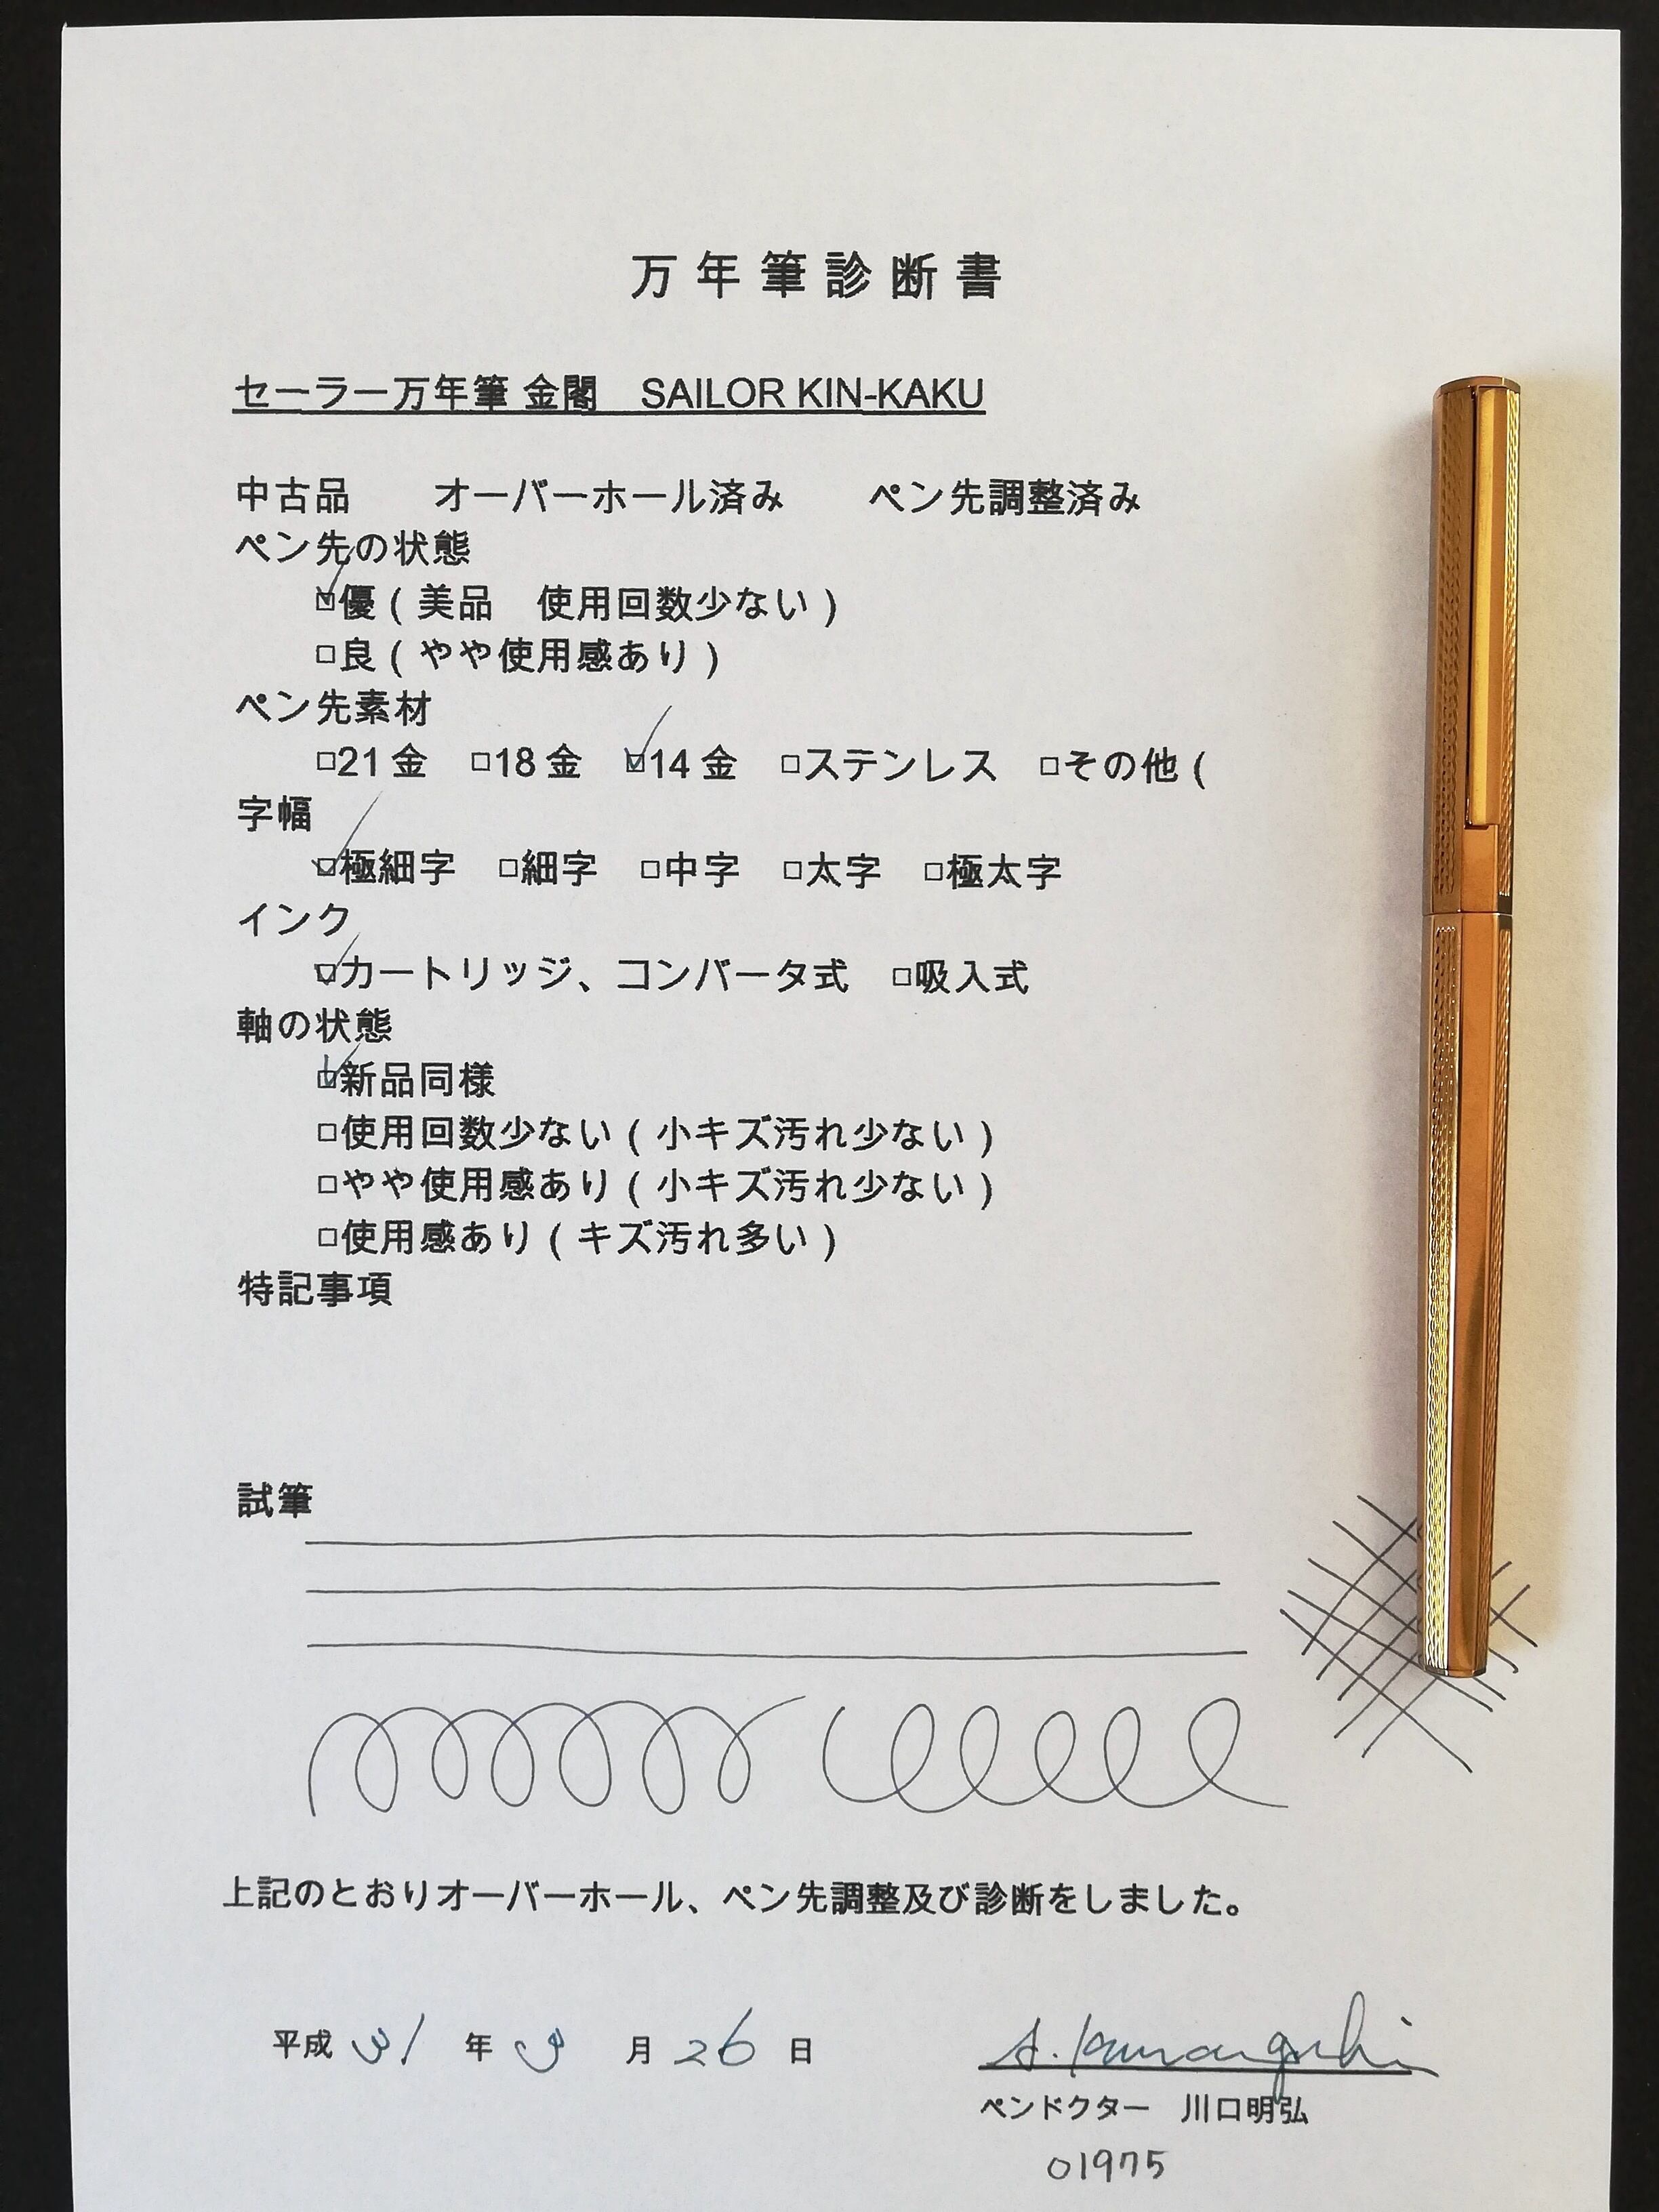 万年筆診断書
セーラー万年筆 金閣　SAILOR KIN-KAKU
中古品　　オーバーホール済み　　ペン先調整済み
ペン先の状態
☑優（美品　使用回数少ない）
□良（やや使用感あり）
ペン先素材
□21金　□18金　☑14金　□ステンレス　□その他（
字幅
☑極細字　□細字　□中字　□太字　□極太字
インク
☑カートリッジ、コンバータ式　□吸入式
軸の状態
☑新品同様
□使用回数少ない（小キズ汚れ少ない）
□やや使用感あり（小キズ汚れ少ない）
□使用感あり（キズ汚れ多い）
特記事項
試筆
上記のとおりオーバーホール、ペン先調整及び診断をしました。
平成 31 年 3 月 26 日
A. Kawaguchi
ペンドクター　川口明弘
01975